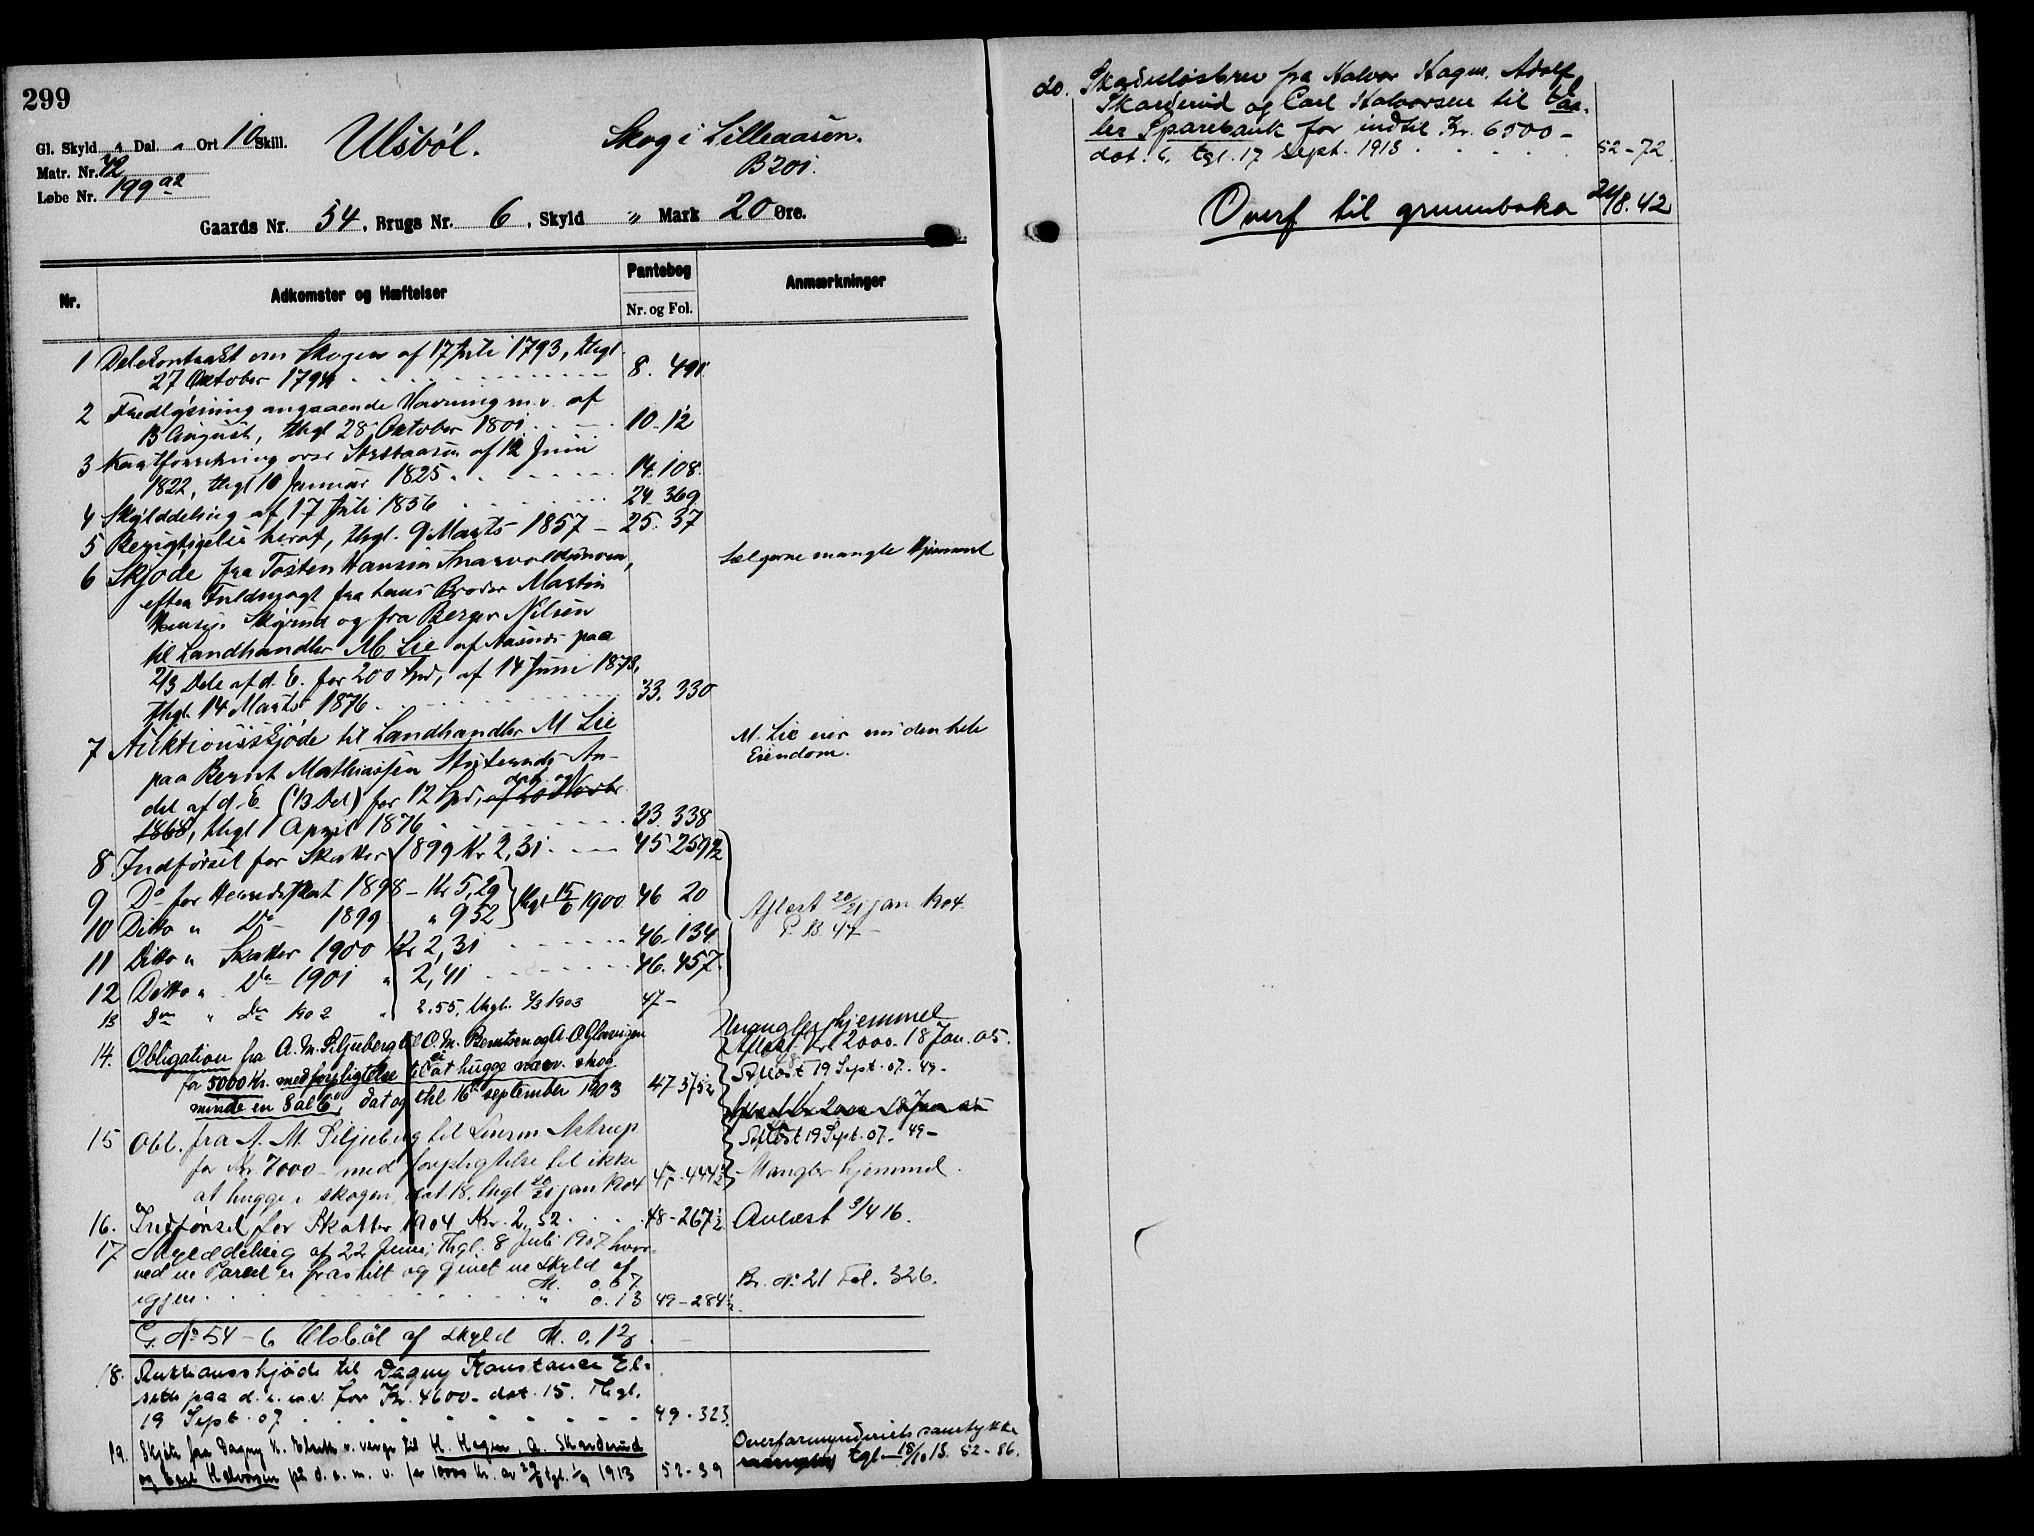 299
Gl. Skyld " Dal. " Ort 10 Skill.
Matr. Nr. 42
Løbe Nr. 199 a2
Ulsbøl.
Skog i Lilleaasen.
B 201.
Gaards Nr. 54, Brugs Nr. 6, Skyld " Mark 20 Øre.
Nr.
Adkomster og Hæftelser
Pantebog
Nr. og Fol.
Anmærkninger
1 Delekontrakt om Skogen af 17 Juli 1793, thgl.
27 Oktober 1794 8. 491
2 Fredlysning angaaende Havning m.v. af
13 August, thgl 28 Oktober 1801 10-12
3 Kartforretning over af 12 Juni
1822, thgl 10 Januar 1825. 14.108.
4 Skylddeling af 17 Juli 1856 24 369
5 Berigtigelse heraf, thgl. 9 Marts 1857 - 25. 37
6 Skjøde fra Tosten Hansen
Sælgerne mangle Hjemmel
efter Fuldmagt fra hans Broder Martin
Hansen og fra Berger Nilsen
til Landhandler M. Lie af Aasnes paa
2/3 Dele af d. E. for 200 Spd, af 14 Juni 1873,
thgl. 14 Marts 1876. 33. 330
7 Auktionsskjøde til Landhandler M Lie
M. Lie eier nu den hele
Eiendom.
paa Berret Mathiassen An-
del af d. E. (1/3 Del) for 12 Spd, dat. og
1868, thgl 1 April 1876 33. 338
8 Indførsel for Skatter 1899 Kr 2,31 45 259 1/2
9 Do for Herredskat 1898 - Kr 5,29 thgl 15/6 1900 46 20
10 Ditto " Do 1899 " 9 52
Aflæst 20/21 jan 1904.
P. B. 47 -
11 Ditto " Skatter 1900 Kr 2,31 46.134
12 Ditto " Do 1901 " 2,41 46. 457.
13 Do " do 1902 " 2.55, thgl. 2/3 1903 47 -
14. Obligation fra A. M. Siljuberg til O. M. Berntsen og A. O. Glorvigen
Mangler hjemmel
Aflæst Kr 2000. 18 Jan. 05.
for 5000 Kr. med forpligtelse til ei at hugge nærv. skog
Aflæst 19 Sept. 07. 49 -
minde en 8 al 6", dat og thl 16 september 1903 47 375 1/2
Aflæst Kr 2000 18 Jan 05
15 Obl. fra A. M. Siljuberg til Astrup
Aflæst 19 Sept. 07. 49 -
for Kr 7000 - med forpligtelse til ikke
at hugge i skogen, dat. 18. thgl 20/21 jan 1904 47. 444 1/2
- Mangler hjemmel.
16. Indførsel for Skatter 1904 Kr. 2,52 48 - 267 1/2
Avlæst 3/4 16.
17 Skylddeling af 22 Juni, Thgl. 8 Juli 1907 hvor-
ved en Parcel er fraskilt og givet en Skyld af
M. 0.07
Br. No 21 Fol. 326.
igjen " 0.13 49 - 284 1/2
G. No 54 - 6 Ulsbøl af Skyld M. 0.13.
18. Auktionsskjøde til Dagny Konstance El-
seth paa d. e. m. v. for Kr. 4600 - dat. 15. Thgl.
19 Sept. 07 49 - 323.
19. Skjøte fra Dagny K. Elseth v. verge til H. Hagen, A. Skarderud
Overformynderiets samtykke
og Carl Halvorsen på d. e. m. v. for 10000 Kr. av 29/8 tgl. 1/9 1913 52 - 39
mangler tgl. 18/10 13. 52 - 86.
20. Skadesløsbrev fra Halvor Hagen, Adolf
Skarderud og Carl Halvorsen til Vaa-
ler Sparebank for indtil Kr. 6500 -
dat. 6. tgl. 17 Sept. 1913 52 - 72.
Overf til grunnboka 24/8.42